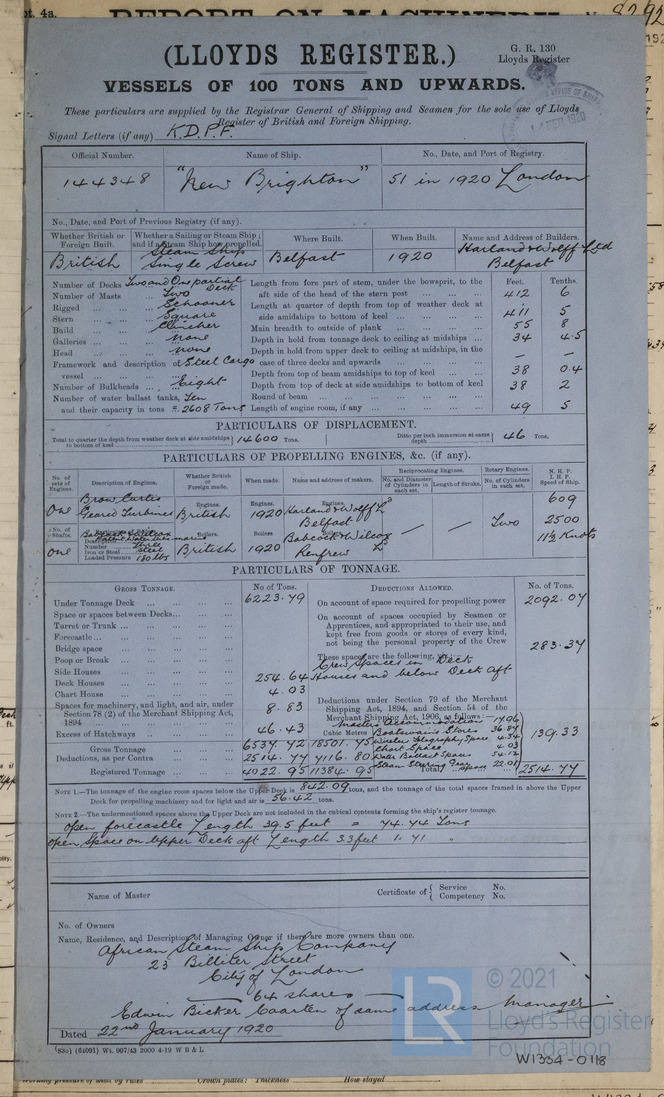 pt. 4a. REPORT ON MACHINERY. No. 8292
(LLOYDS REGISTER.)
G. R. 130
Lloyds Register
VESSELS OF 100 TONS AND UPWARDS.
These particulars are supplied by the Registrar General of Shipping and Seamen for the sole use of Lloyds
Register of British and Foreign Shipping.
Signal Letters (if any) K.D.P.F.
Official Number. Name of Ship. No., Date, and Port of Registry.
144348 "New Brighton" 51 in 1920 London
No., Date, and Port of Previous Registry (if any).
Whether British or Foreign Built. Whether a Sailing or Steam Ship; and if a Steam Ship how propelled. Where Built. When Built. Name and Address of Builders.
British Steam Ship Single Screw Belfast 1920 Harland & Wolff Ltd Belfast
Feet. Tenths.
Number of Decks Two and One partial Deck Length from fore part of stem, under the bowsprit, to the
Number of Masts Two aft side of the head of the stern post 412 6
Rigged Schooner Length at quarter of depth from top of weather deck at
Stern Square side amidships to bottom of keel 411 5
Build Clencher Main breadth to outside of plank 55 8
Galleries None Depth in hold from tonnage deck to ceiling at midships 34 4.5
Head None Depth in hold from upper deck to ceiling at midships, in the
Framework and description of Steel Cargo case of three decks and upwards — —
vessel Depth from top of beam amidships to top of keel 38 0.4
Number of Bulkheads Eight Depth from top of deck at side amidships to bottom of keel 38 2
Number of water ballast tanks, Ten Round of beam
and their capacity in tons = 2608 Tons Length of engine room, if any 49 5
PARTICULARS OF DISPLACEMENT.
Total to quarter the depth from weather deck at side amidships to bottom of keel 14600 Tons. Ditto per inch immersion at same depth 46 Tons.
PARTICULARS OF PROPELLING ENGINES, &c. (if any).
No. of sets of Engines. Description of Engines. Whether British or Foreign made. When made. Name and address of makers. Reciprocating Engines. No. and Diameter of Cylinders in each set. Length of Stroke. Rotary Engines. No. of Cylinders in each set. N. H. P. I. H. P. Speed of Ship.
One Brown Curtis Geared Turbines Engines. British Engines. 1920 Engines. Harland & Wolff Ld Belfast — — Two 609
2500
11½ Knots
No. of Shafts. Description Number Iron or Steel Steel Loaded Pressure 180 lbs Boilers. Boilers
one British 1920 Babcock & Wilcox Ld Renfrew
PARTICULARS OF TONNAGE.
GROSS TONNAGE. No of Tons. DEDUCTIONS ALLOWED. No. of Tons.
Under Tonnage Deck 6223.79 On account of space required for propelling power 2092.07
Space or spaces between Decks On account of spaces occupied by Seamen or
Turret or Trunk Apprentices, and appropriated to their use, and
Forecastle kept free from goods or stores of every kind,
Bridge space not being the personal property of the Crew 283.37
Poop or Break These spaces are the following, viz.:—
Side Houses Crew Spaces in Deck
Deck Houses 254.64 Houses and below Deck Aft
Chart House 4.03
Spaces for machinery, and light, and air, under Section 78 (2) of the Merchant Shipping Act, 1894 8.83 Deductions under Section 79 of the Merchant Shipping Act, 1894, and Section 54 of the Merchant Shipping Act, 1906, as follows:—
Excess of Hatchways 46.43 Cubic Metres
Masters Accommodation 17.06
Boatswains Stores 36.87
Wireless Telegraphy Space 4.54
Chart Space 4.03
Water Ballast Space 54.12
Steam Steering Gear space 22.01
139.33
Gross Tonnage 6537.72 18501.75
Deductions, as per Contra 2514.77 7116.80
Registered Tonnage 4022.95 11384.95 Total 2514.77
NOTE 1.—The tonnage of the engine room spaces below the Upper Deck is 842.09 tons, and the tonnage of the total spaces framed in above the Upper
Deck for propelling machinery and for light and air is 56.42 tons.
NOTE 2.—The undermentioned spaces above the Upper Deck are not included in the cubical contents forming the ship's register tonnage.
Open forecastle Length 39.5 feet = 74.74 Tons
Open Space on Upper Deck aft Length 3.3 feet 1.71 "
Name of Master Certificate of { Service No.
Competency No.
No. of Owners
Name, Residence, and Description of Managing Owner if there are more owners than one.
African Steam Ship Company
23 Billiter Street
City of London
64 shares
Edwin Bicker Caarten of same address Manager
Dated 22nd January 1920
(830) (64091) Wt. 907/43 2000 4-19 W B & L
© 2021
Lloyd's Register
Foundation
W1334-0118
Working pressure of shell by rules Crown plates: Thickness How stayed